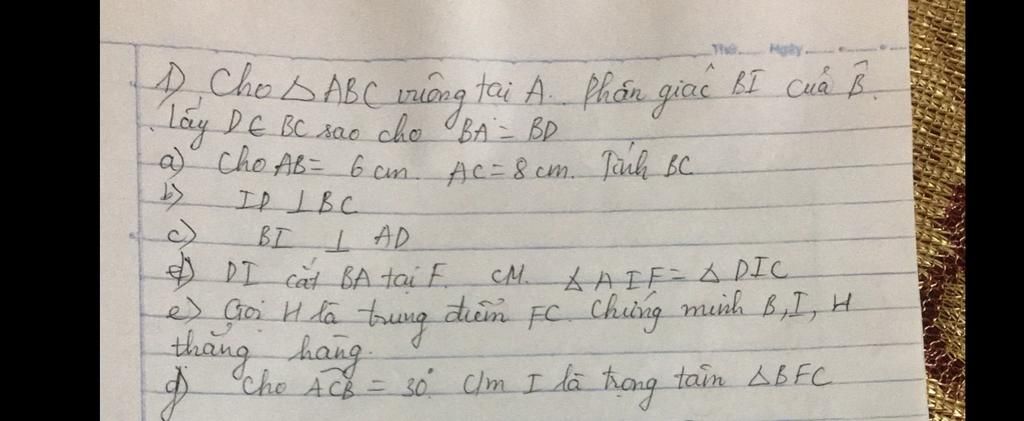 Thứ..... Ngày.....
1) Cho △ABC vuông tại A. Phân giác BI của B̂.
Lấy D ∈ BC sao cho BA = BD
a) Cho AB = 6 cm. AC = 8 cm. Tính BC
b) ID ⊥ BC
c) BI ⊥ AD
d) DI cắt BA tại F. CM. △AIF = △DIC
e) Gọi H là trung điểm FC. Chứng minh B, I, H
thẳng hàng.
g) Cho ACB = 30° C/m I là trọng tâm △BFC